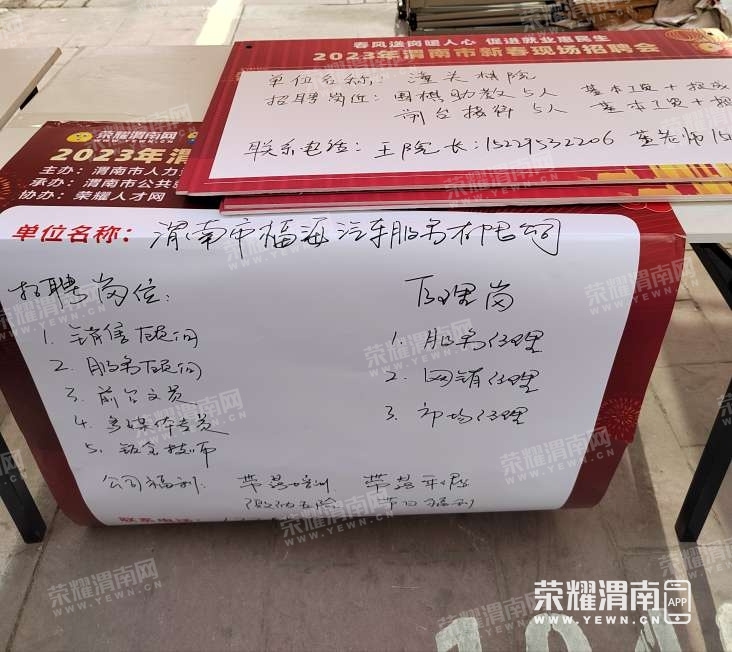 春风送岗暖人心 促进就业惠民生
2023年渭南市新春现场招聘会
单位名称: 潼关棋院
招聘岗位: 围棋助教5人 基本工资+提成
前台接待 5人 基本工资+提
联系电话: 王院长:15229532206 董老师15
荣耀渭南网
WWW.YEWN.CN
2023年渭
主办: 渭南市人力
承办: 渭南市公共
协办: 荣耀人才网
单位名称: 渭南市福海汽车服务有限公司
招聘岗位:
1. 销售顾问
2. 服务顾问
3. 前台文员
4. 多媒体专员
5. 钣金技师
管理岗
1. 服务经理
2. 网销经理
3. 市场经理
公司福利: 带薪培训 带薪年假
缴纳五险 节日福利
联系电话:
荣耀渭南网
WWW.YEWN.CN
荣耀渭南 APP
WWW.YEWN.CN